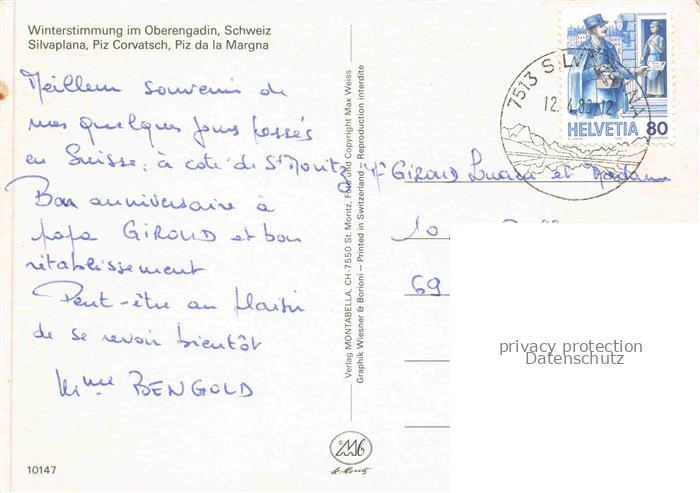 Winterstimmung im Oberengadin, Schweiz
Silvaplana, Piz Corvatsch, Piz da la Margna
Meilleur souvenir de
mes quelques jours passés
en Suisse, à coté de St Moritz
Bon anniversaire à
papa GIROUD et bon
rétablissement
Peut-être au plaisir
de se revoir bientôt
Mme BENGOLD
10147
Verlag MONTABELLA, CH-7550 St. Moritz, Foto und Copyright Max Weiss
Graphik Wiesner & Borioni – Printed in Switzerland – Reproduction interdite
St. Moritz
7513 SILVAPLANA
12.4.89-12
HELVETIA 80
Mr GIROUD et Madame
10
69
privacy protection
Datenschutz